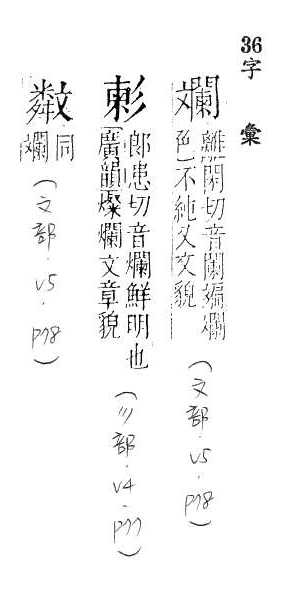 36字 彙
斕
離閑切音闌斒斕
色不純又文貌
(文部.v5.p78)
郎患切音爛鮮明也
廣韻燦爛文章貌
(彡部.v4.p77)
同
斕
(文部.v5.p78)